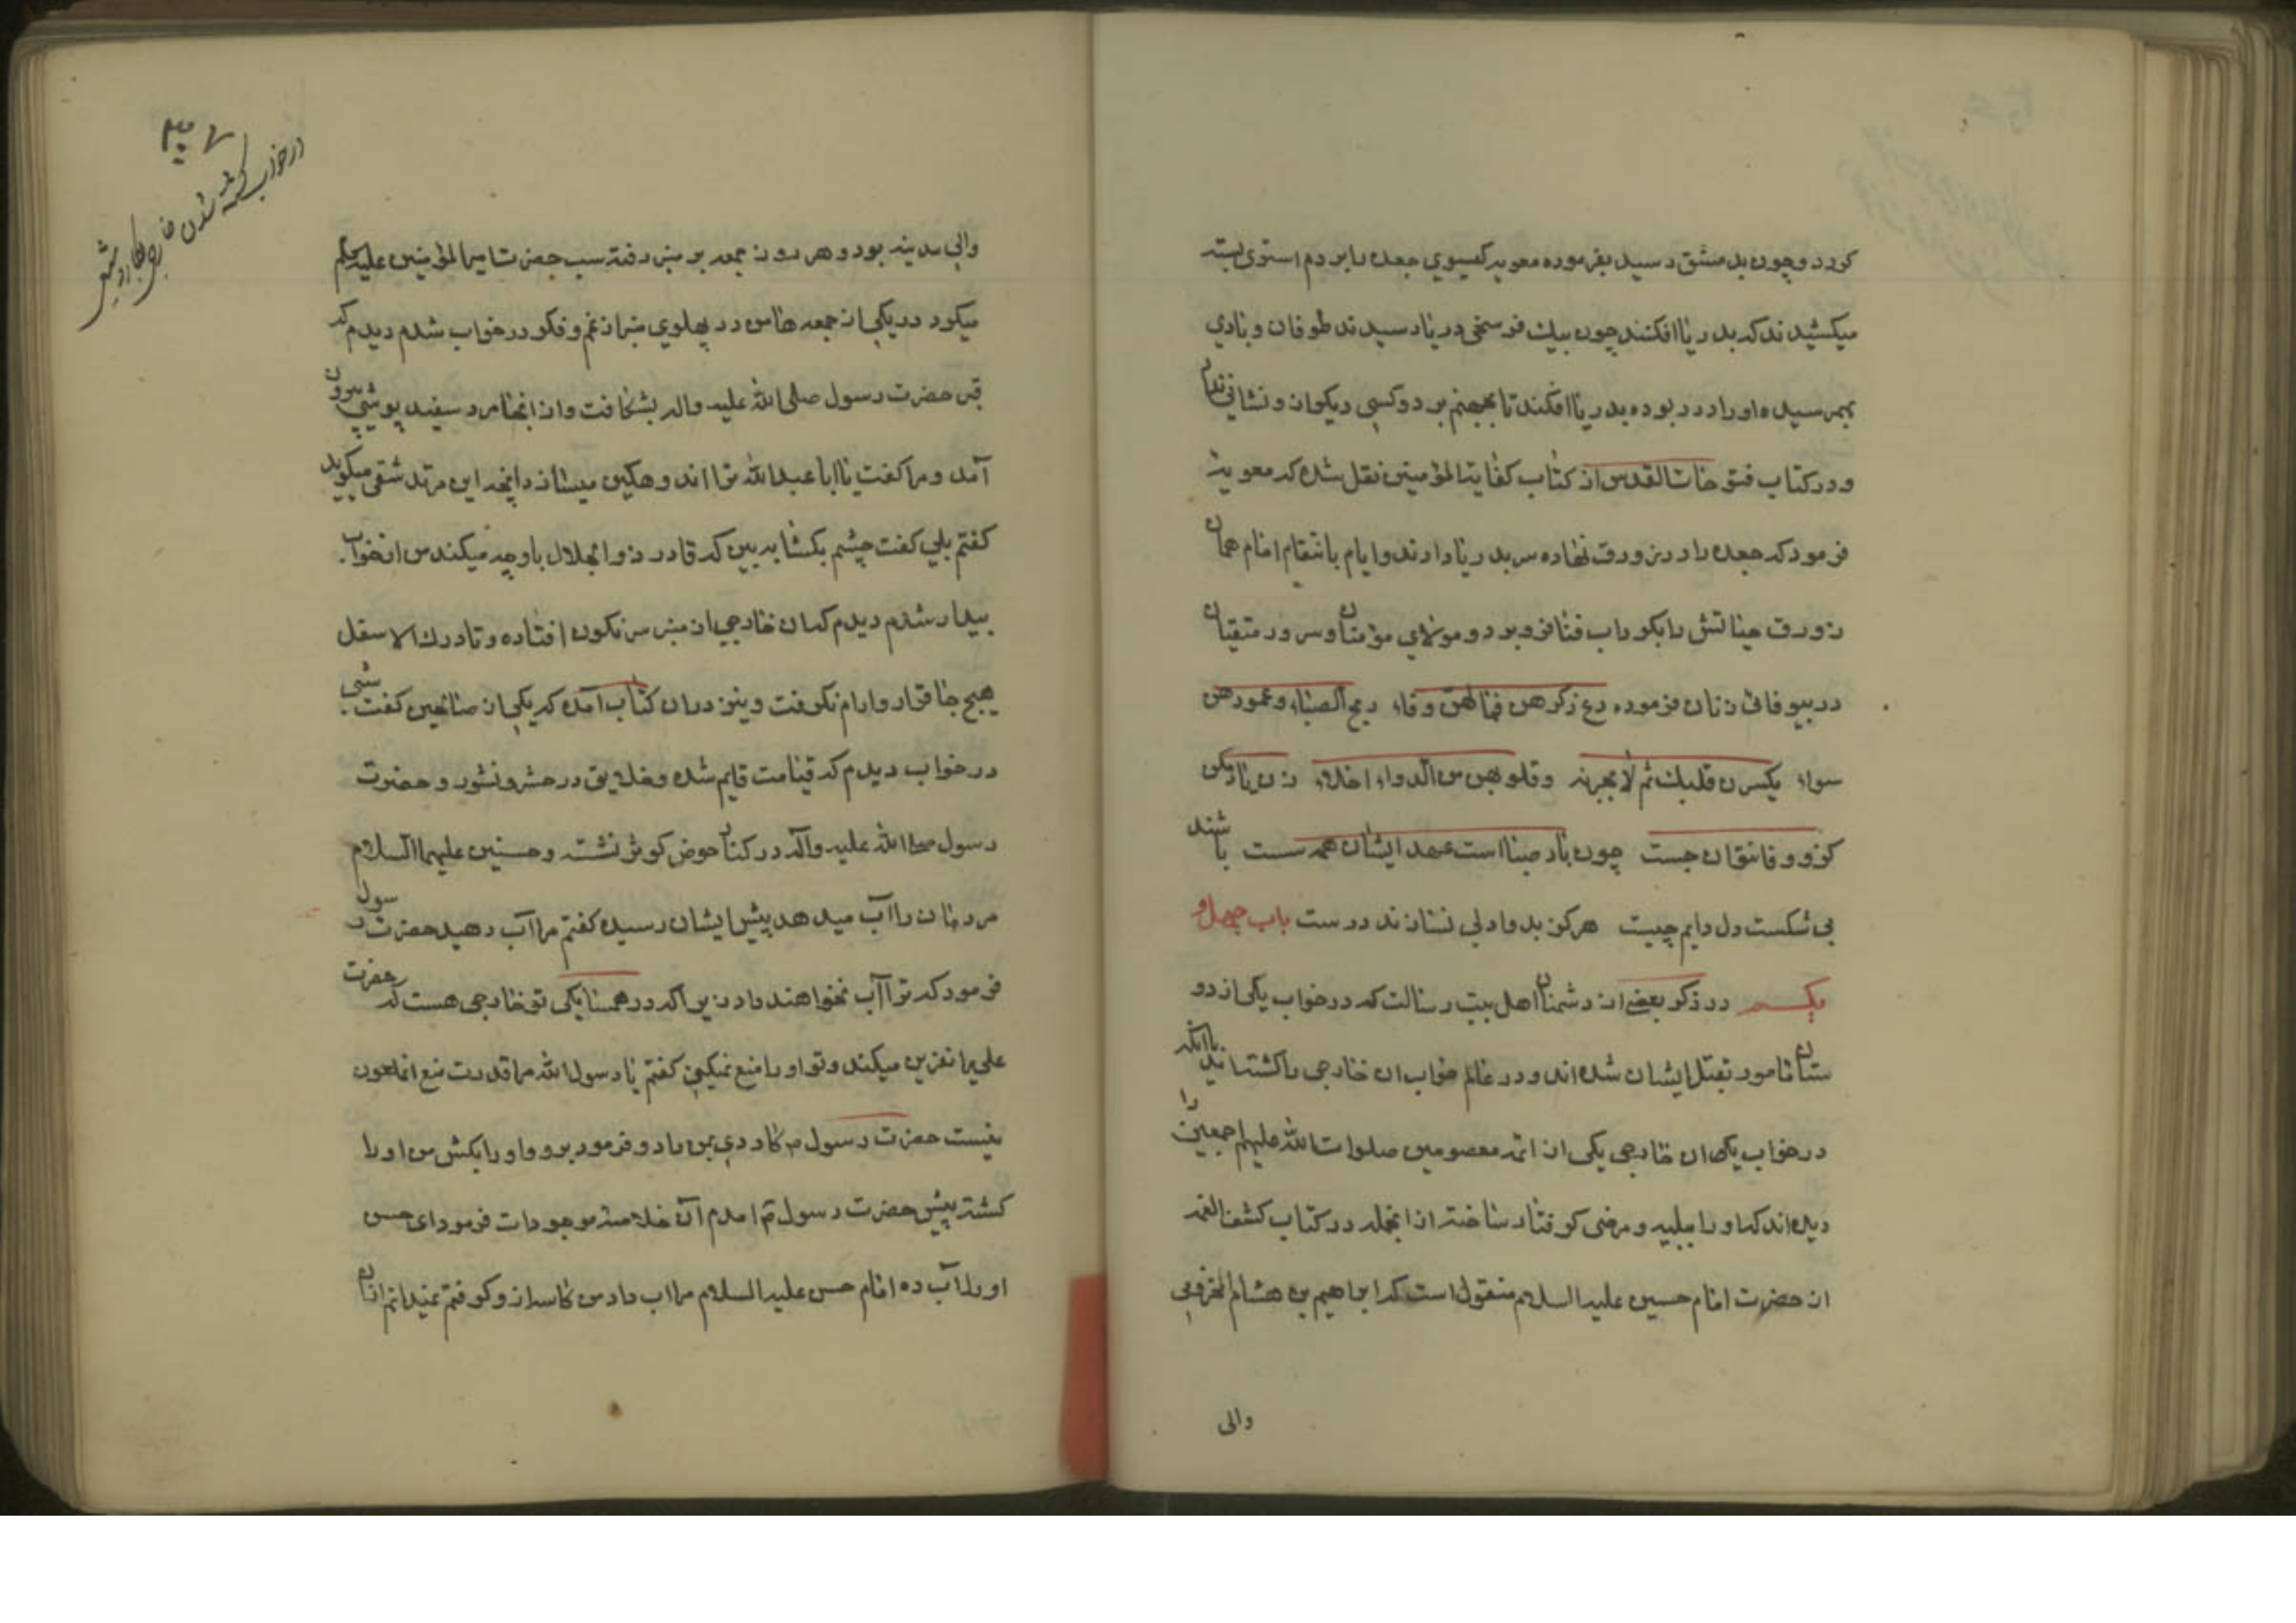 کردد و چون بدمشق رسید بفرموده معویه کیسوی جعده را بر دم استری بسته
میکشیدند که بدریا افکنند چون بیک فرسخی دریا رسیدند طوفان و بادی
بهم رسیده او را در ربوده بدریا افکند تا بجهنم برد و کسی دیکر از و نشانی نداد
و در کتاب فتوحات القدس از کتاب کفایت المؤمنین نقل شده که معویه
فرمود که جعده را در زورق نهاده سر بدریا دادند و ایام بانتقام امام همان
زورق حیاتش را بکرداب فنا فرو برد و مولای مؤمنان و سرور متقیان
در بیوفائی زنان فرموده دع ذکرهن فمالهن وفاء ریح الصبا و عهودهن
سواء یکسرن قلبک ثم لا یجبرنه و قلوبهن من الدواء خلاء زن
کزو وفا نتوان جست چون باد صبا است عهد ایشان همه سست باشند
بی شکست دل دایم چیست هرکز بدوا دلی نسازند درست باب چهل و
یکم در ذکر بعضی از دشمنان اهل بیت رسالت که در خواب یکی از دو
ستان مامور بقتل ایشان شده اند و در عالم خواب ان خارجی را کشته اند یا انکه
در خواب یکی ان خارجی یکی از ائمه معصومین صلوات الله علیهم اجمعین را
دیده اند که او را ببلیه و مرضی کرفتار ساخته از انجمله در کتاب کشف الغمه
از حضرت امام حسین علیه السلام منقول است که ابراهیم بن هشام المخزومی
والی
در خواب کشته شدن خارجی بکارد
والی مدینه بود و هر روز جمعه بر منبر رفته سب حضرت امیر المؤمنین علیه السلام
میکرد در یکی از جمعه ها من در پهلوی منبر از غم و فکر در خواب شدم دیدم که
قبر حضرت رسول صلی الله علیه و اله بشکافت و از انجا مرد سفید پوشی بیرون
آمد و مرا کفت یا ابا عبدالله ترا اندوهکین میسازد انچه این مرتد شقی میکوید
کفتم بلی کفت چشم بکشا به بین که قادر ذوالجلال باو چه میکند من از خواب
بیدار شدم دیدم که ان خارجی از منبر سر نکون افتاده و تا درک الاسفل
هیچ جا قرار و ارام نکرفت و نیز در ان کتاب آمده که یکی از صالحین کفت شبی
در خواب دیدم که قیامت قایم شده و خلایق در حشر و نشور و حضرت
رسول صلی الله علیه و آله در کنار حوض کوثر نشسته و حسنین علیهما السلام
مردمان را آب میدهد پیش ایشان رسیده کفتم مرا آب دهید حضرت رسول
فرمود که ترا آب نخواهند داد زیرا که در همسایکی تو خارجی هست که حضرت
علی را نفرین میکند و تو او را منع نمیکنی کفتم یا رسول الله مرا قدرت منع انملعون
نیست حضرت رسول ص کاردی بمن داد و فرمود برو و او را بکش من او را
کشته پیش حضرت رسول ص امدم آن خلاصه موجودات فرمود ای حسن
او را آب ده امام حسن علیه السلام مرا اب داد من کاسه از و کرفتم نمیدانم ازان